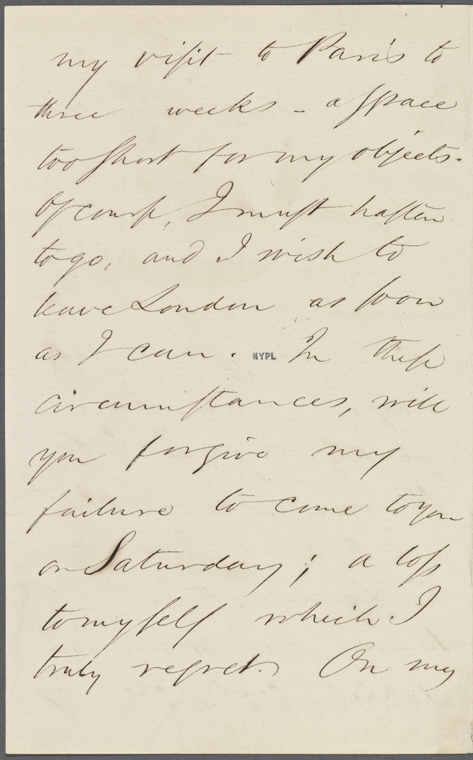 my visit to Paris to
three weeks - a space
too short for my objects.
Of course, I must hasten
to go, and I wish to
leave London as soon
as I can. NYPL In these
circumstances, will
you forgive my
failure to come to you
on Saturday; a loss
to myself which I
truly regret. On my